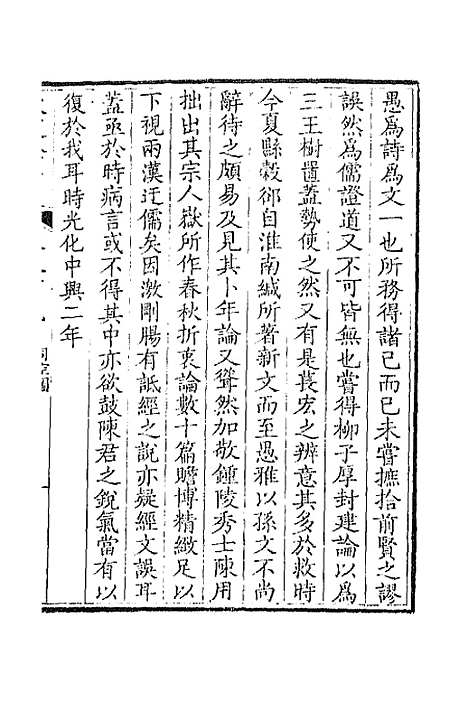 愚爲詩爲文一也所務得諸己而已未嘗摭拾前賢之謬
誤然爲儒證道又不可皆無也嘗得柳子厚封建論以爲
三王樹置蓋勢使之然又有是萇宏之辨意其多於救時
今夏縣穀郤自淮南緘所著新文而至愚雅以孫文不尚
辭待之頗易及見其卜年論又聳然加敬鍾陵秀士陳用
拙出其宗人嶽所作春秋折衷論數十篇贍博精緻足以
下視兩漢迂儒矣因激剛腸有詆經之說亦疑經文誤耳
蓋亟於時病言或不得其中亦欲鼓陳君之銳氣當有以
復於我耳時光化中興二年